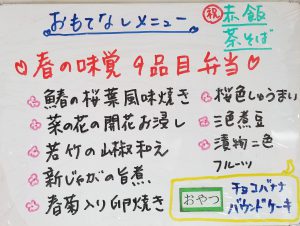 おもてなしメニュー
祝 赤飯
茶そば
春の味覚 9品目弁当
鰆の桜葉風味焼き
菜の花の開花お浸し
若竹の山椒和え
新じゃがの旨煮
春菊入り卵焼き
桜色しゅうまい
三色煮豆
漬物二色
フルーツ
おやつ
チョコバナナ
パウンドケーキ